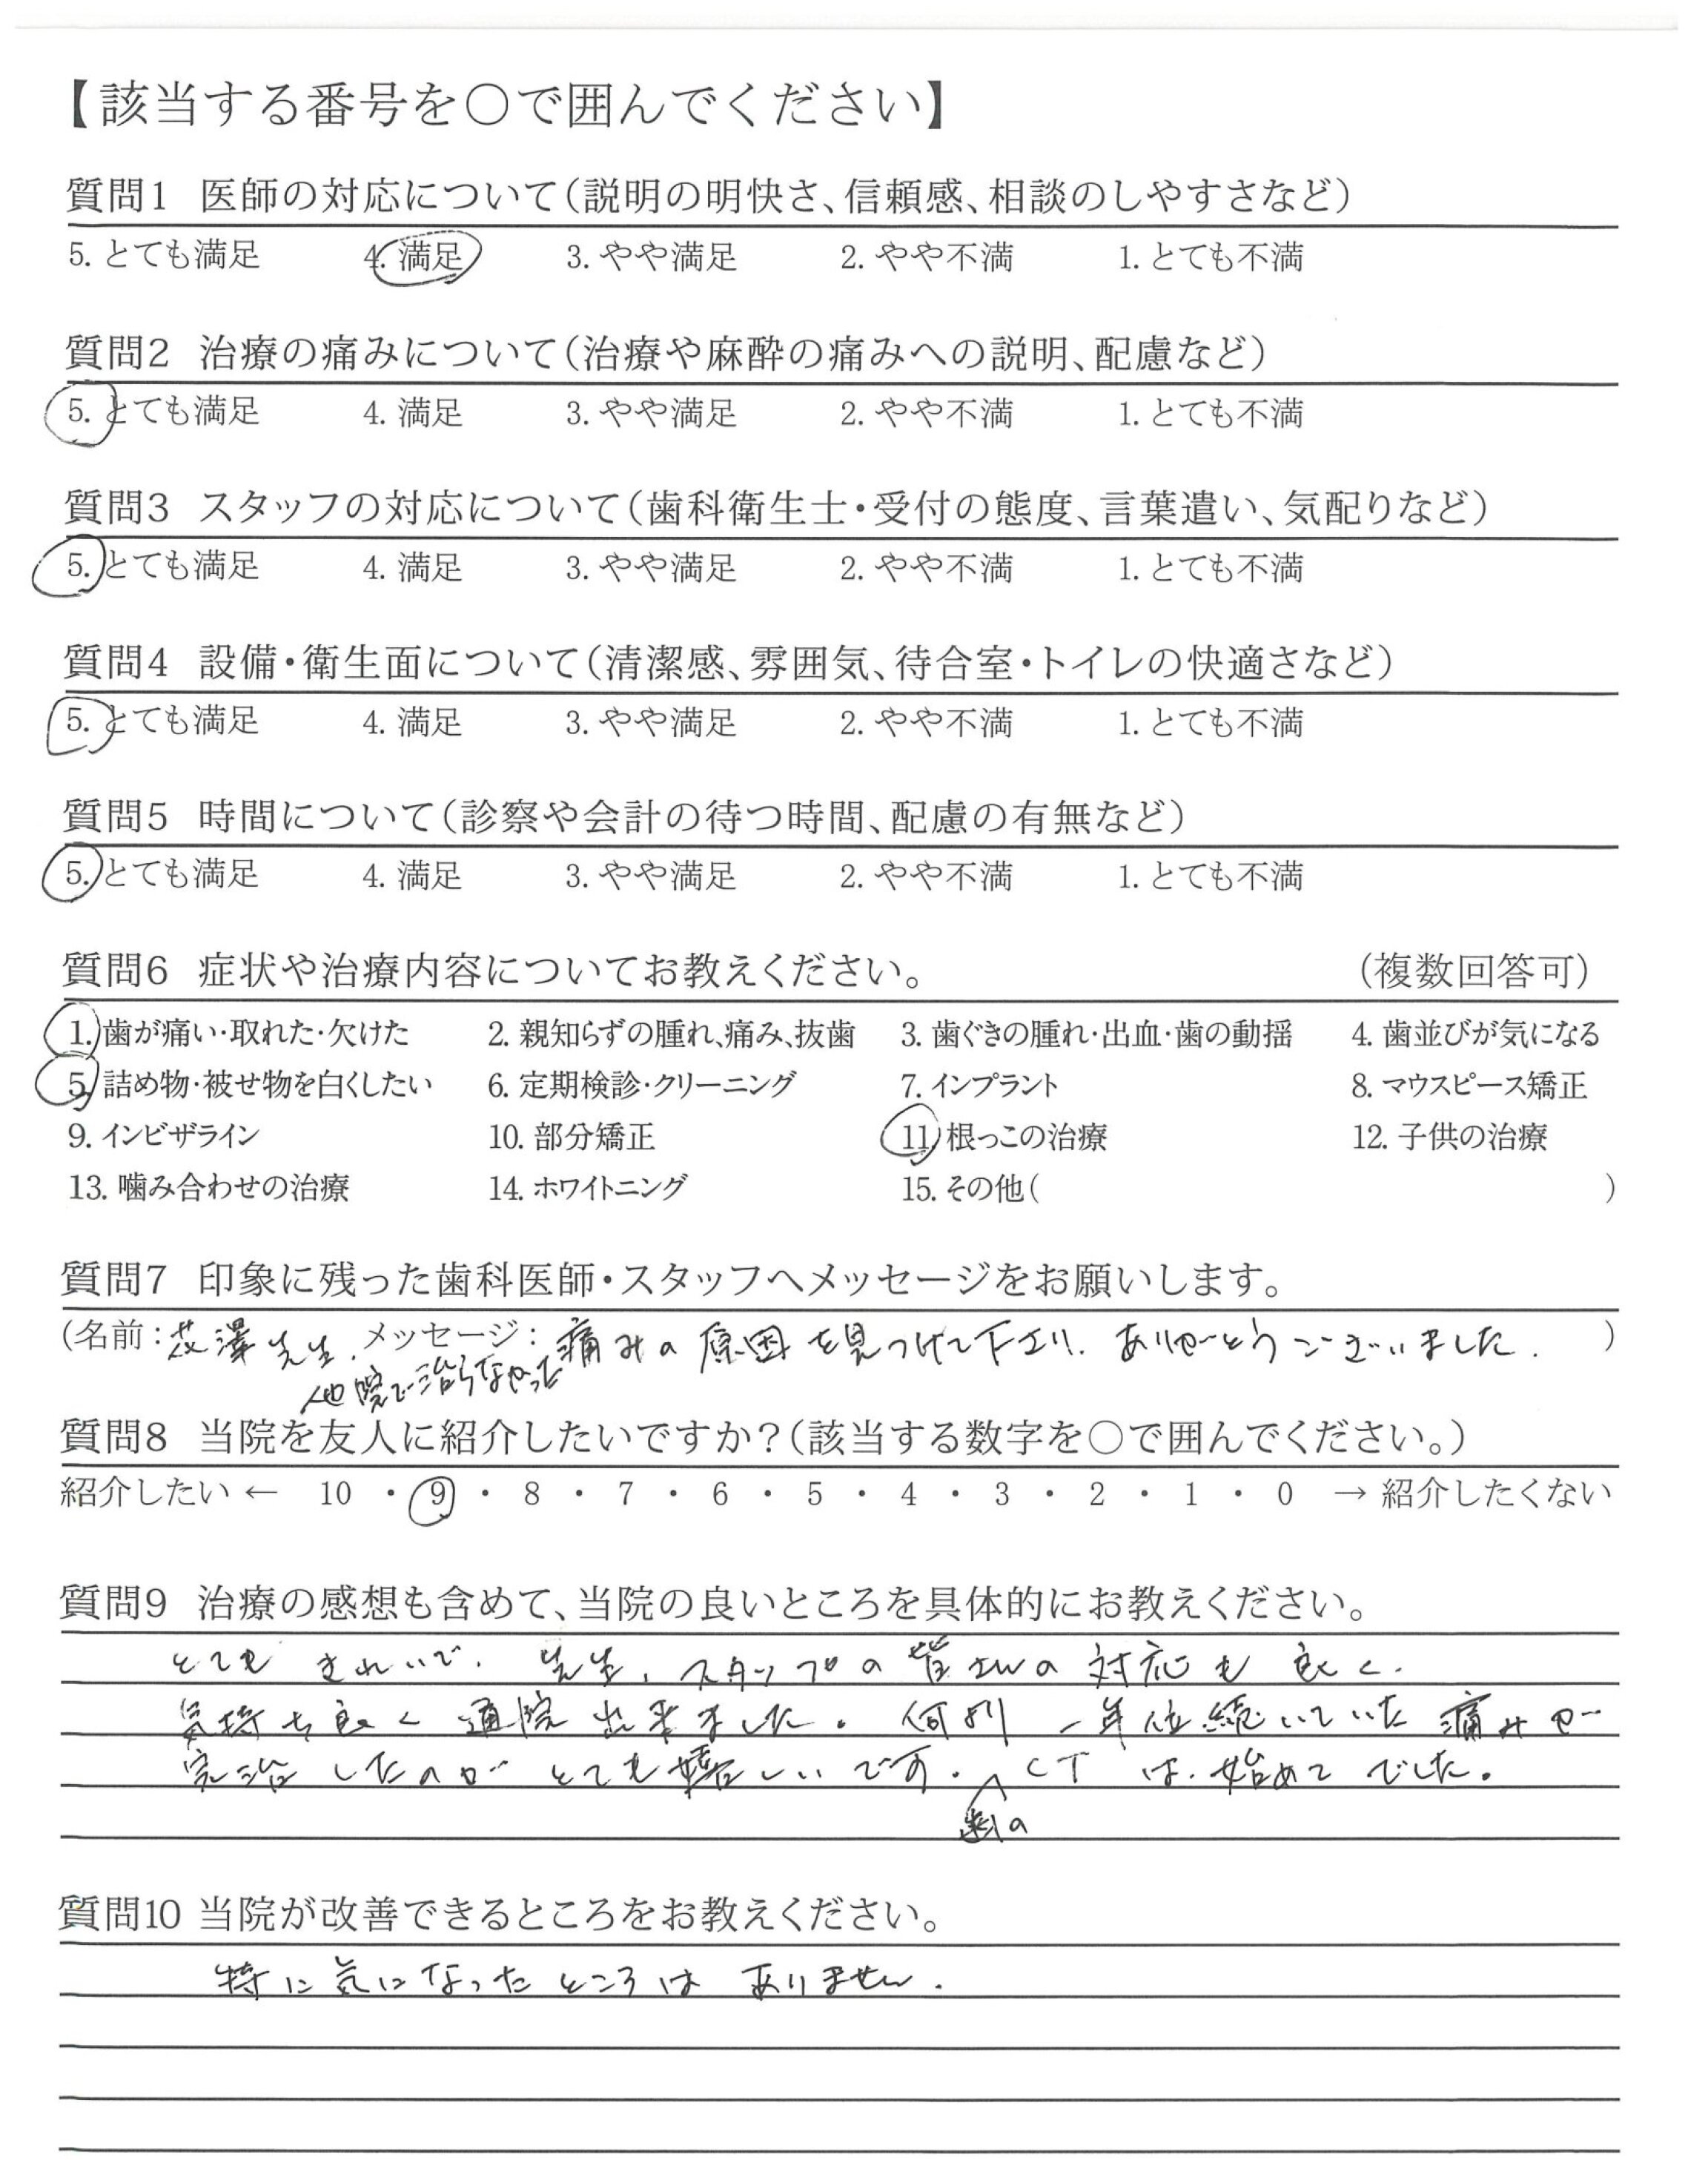 【該当する番号を○で囲んでください】
質問1 医師の対応について(説明の明快さ、信頼感、相談のしやすさなど)
5. とても満足 4. 満足 3. やや満足 2. やや不満 1. とても不満
質問2 治療の痛みについて(治療や麻酔の痛みへの説明、配慮など)
5. とても満足 4. 満足 3. やや満足 2. やや不満 1. とても不満
質問3 スタッフの対応について(歯科衛生士・受付の態度、言葉遣い、気配りなど)
5. とても満足 4. 満足 3. やや満足 2. やや不満 1. とても不満
質問4 設備・衛生面について(清潔感、雰囲気、待合室・トイレの快適さなど)
5. とても満足 4. 満足 3. やや満足 2. やや不満 1. とても不満
質問5 時間について(診察や会計の待つ時間、配慮の有無など)
5. とても満足 4. 満足 3. やや満足 2. やや不満 1. とても不満
質問6 症状や治療内容についてお教えください。 (複数回答可)
1. 歯が痛い・取れた・欠けた 2. 親知らずの腫れ、痛み、抜歯 3. 歯ぐきの腫れ・出血・歯の動揺 4. 歯並びが気になる
5. 詰め物・被せ物を白くしたい 6. 定期検診・クリーニング 7. インプラント 8. マウスピース矯正
9. インビザライン 10. 部分矯正 11. 根っこの治療 12. 子供の治療
13. 噛み合わせの治療 14. ホワイトニング 15. その他( )
質問7 印象に残った歯科医師・スタッフへメッセージをお願いします。
(名前:澤先生. メッセージ:痛みの原因を見つけて下さり、ありがとうございました. )
他院で治らなかった
質問8 当院を友人に紹介したいですか?(該当する数字を○で囲んでください。)
紹介したい ← 10 ・ 9 ・ 8 ・ 7 ・ 6 ・ 5 ・ 4 ・ 3 ・ 2 ・ 1 ・ 0 → 紹介したくない
質問9 治療の感想も含めて、当院の良いところを具体的にお教えください。
とても きれいで、先生、スタッフの皆さんの対応も良く、
気持ち良く通院出来ました。何より 一年位続いていた痛みが
完治したのが とても嬉しいです。CTは、始めてでした。
歯の
質問10 当院が改善できるところをお教えください。
特に気になったところは ありません.